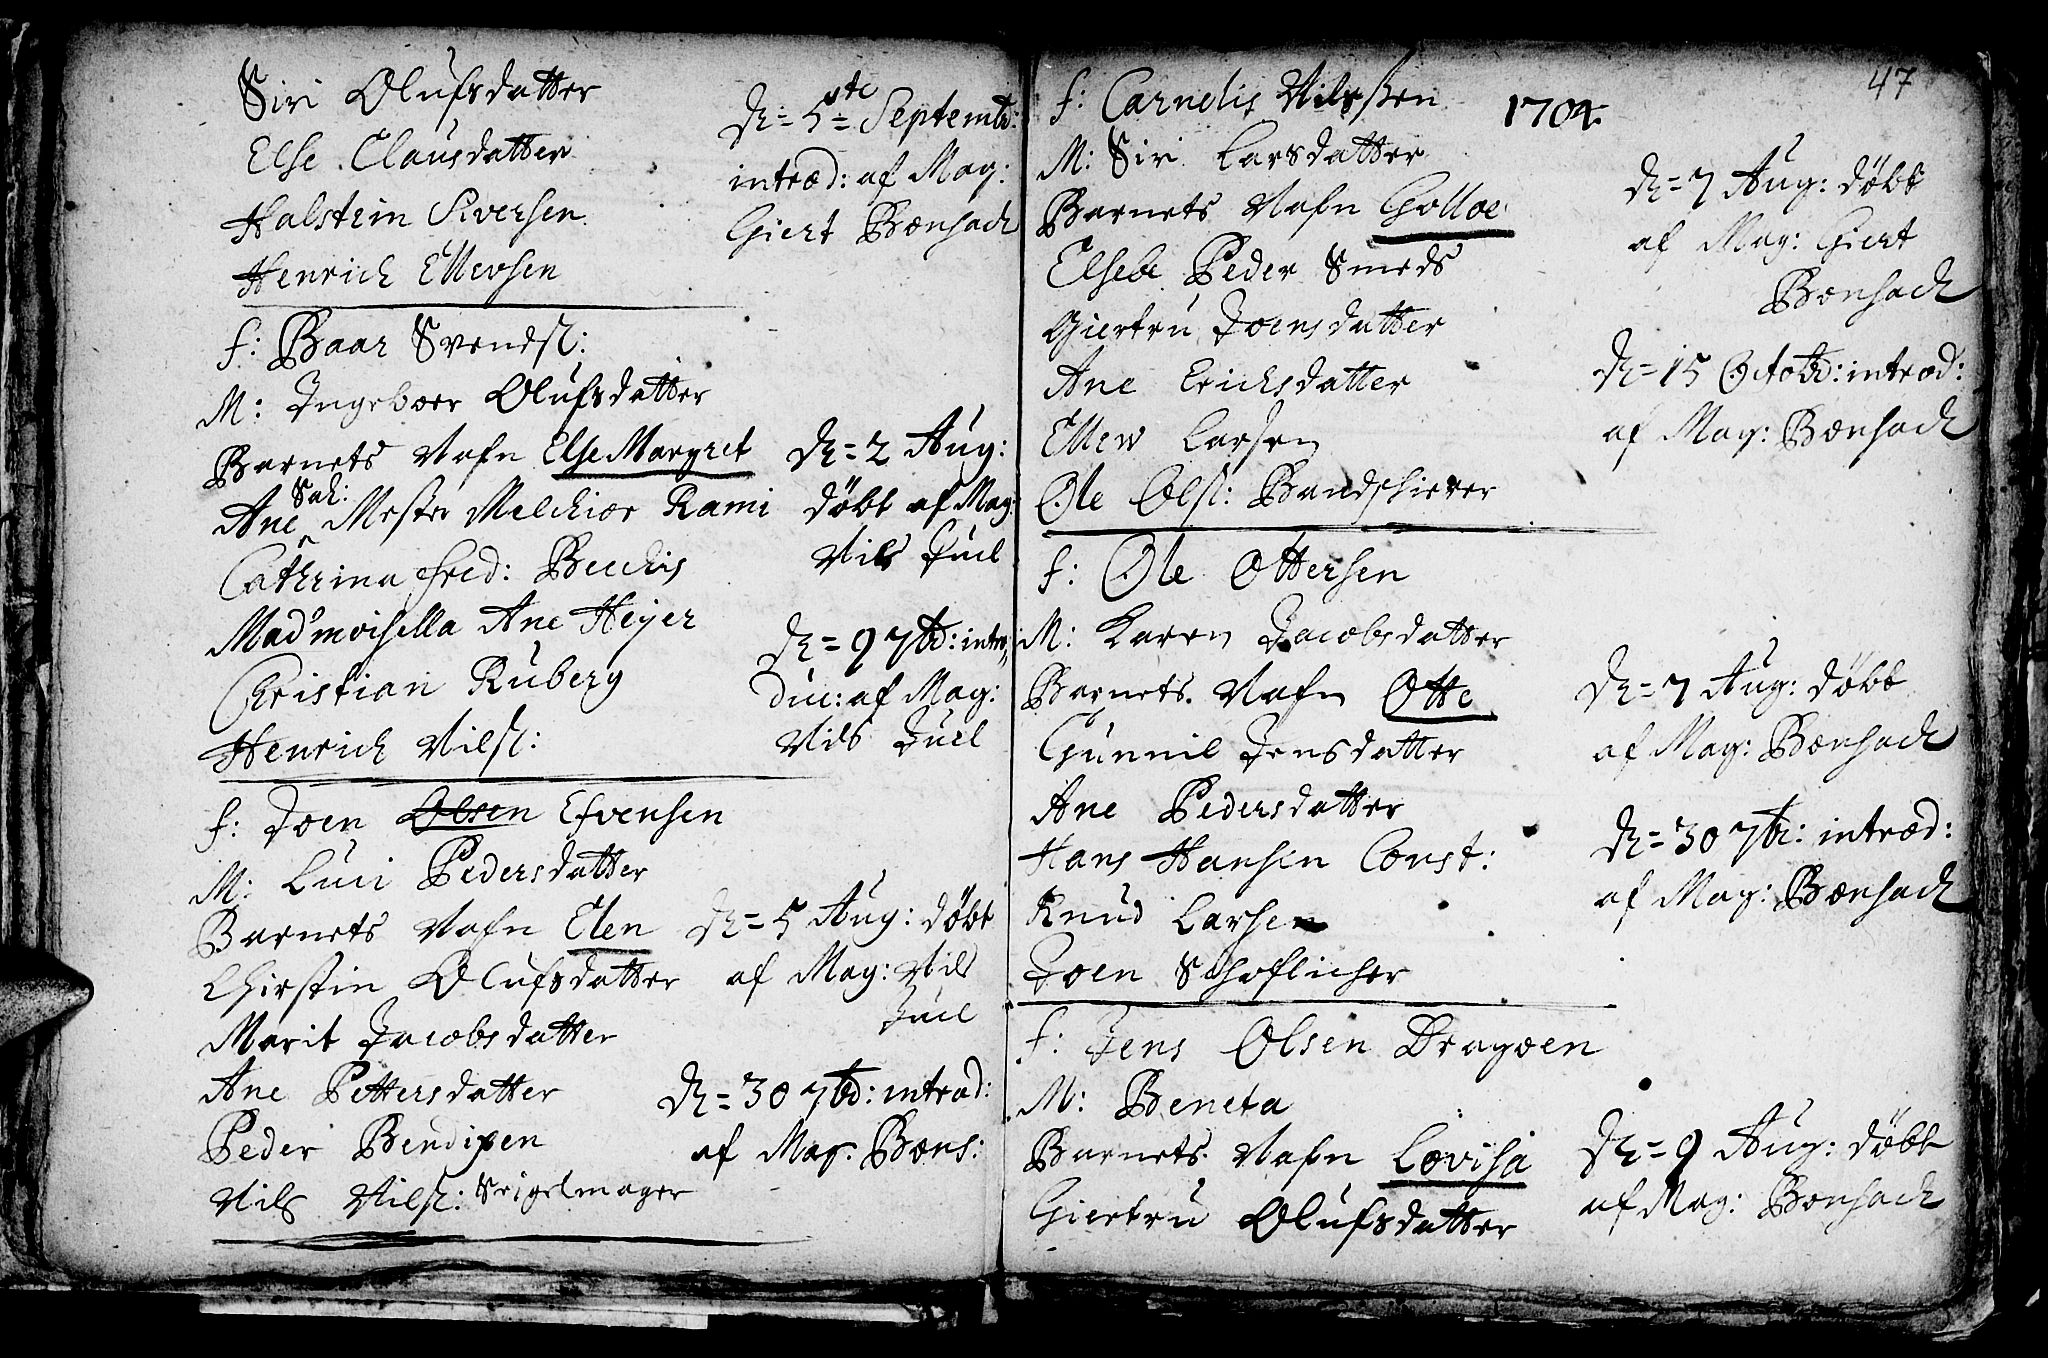 Siri Olufsdatter
Else Clausdatter
Halstein Siversen
Henrich Ellevsen
D: = 5te Septembr:
introd: af Mag:
Giert Bonsach
f: Baar Svends:
M: Ingeboer Olufsdatter
Barnets Nafn Else Margret
Ane Sal: Mester Melchior Rami
Cathrina Fred: Beckis
Mad'moisella Ane Heyer
Christian Ruberg
Henrich Nils:
D: = 2 Aug:
døbt af Mag:
Nils Juel
D: = 9 7br: intro
duc: af Mag:
Nils Juel
f: Joen Olsen Efvensen
M: Luci Pedersdatter
Barnets Nafn Elen
Chirstin Olufsdatter
Marit Jacobsdatter
Ane Pettersdatter
Peder Bendixen
Nils Nils: Seigelmager
D: = 5 Aug: døbt
af Mag: Nils
Juel
D: = 30 7br: introd:
af Mag. Bons:
47
1704
f: Cornelis Nilssen
M: Siri Larsdatter
Barnets Nafn Golloe
Elsebe Peder Smeds
Giertru Joensdatter
Ane Erichsdatter
Ellew Larsen
Ole Ols: Bandschierer
D: = 7 Aug: døbt
af Mag: Giert
Bonsach
D: = 15 Octobr: introd:
af Mag: Bonsach
f: Ole Ottersen
M: Karen Jacobsdatter
Barnets Nafn Otte
Gunnil Jensdatter
Ane Pedersdatter
Hans Hansen Const:
Knud Larsen
Joen Schoflicher
D: = 7 Aug: døbt
af Mag: Bonsach
D: = 30 7br: introd:
af Mag: Bonsach
f: Jens Olsen Dragoen
M: Beneta
Barnets Nafn Lovisa
Giertru Olufsdatter
D: = 9 Aug: døbt
af Mag: Bonsach